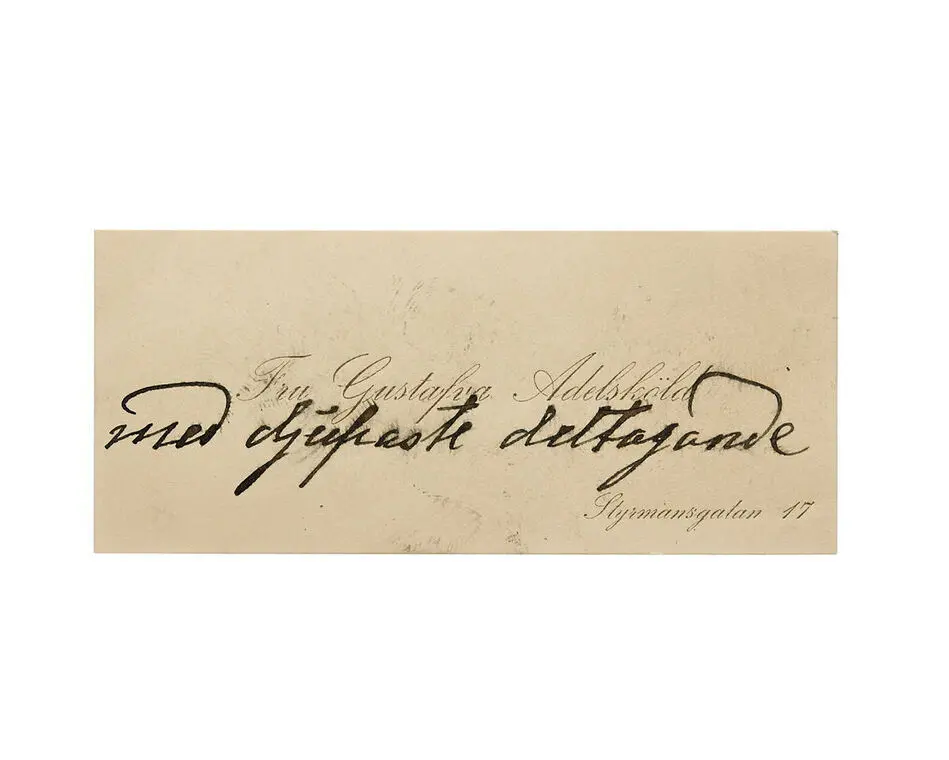 Fru Gustafva Adelsköld
med djupaste deltagande
Styrmansgatan 17